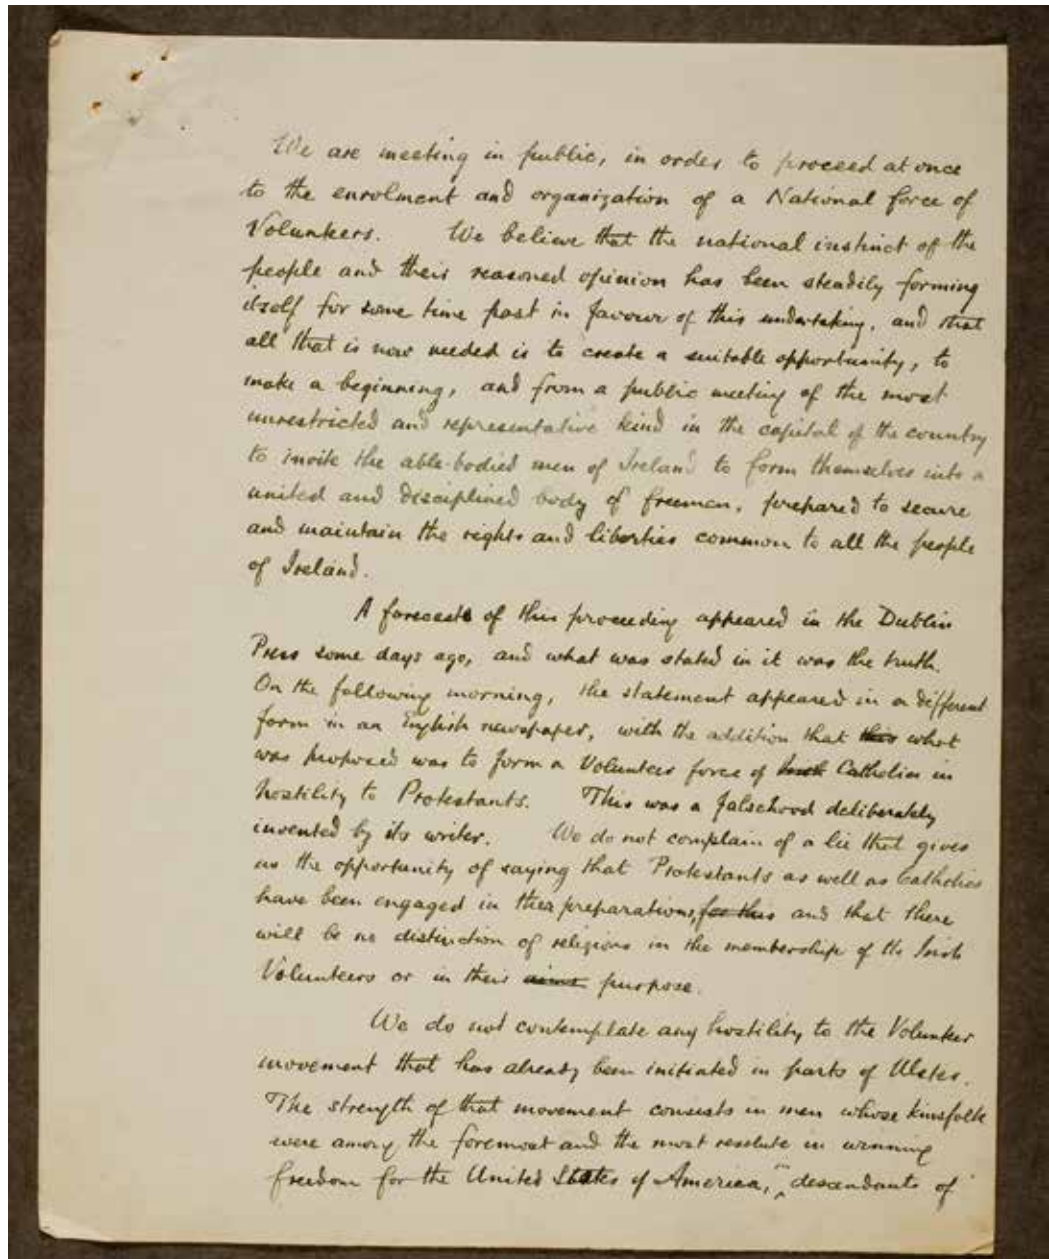 We are meeting in public, in order to proceed at once
to the enrolment and organization of a National force of
Volunteers. We believe that the national instinct of the
people and their reasoned opinion has been steadily forming
itself for some time past in favour of this undertaking, and that
all that is now needed is to create a suitable opportunity, to
make a beginning, and from a public meeting of the most
unrestricted and representative kind in the capital of the country
to invite the able-bodied men of Ireland to form themselves into a
united and disciplined body of freemen, prepared to secure
and maintain the rights and liberties common to all the people
of Ireland.
A forecast of this proceeding appeared in the Dublin
Press some days ago, and what was stated in it was the truth.
On the following morning, the statement appeared in a different
form in an English newspaper, with the addition that this what
was proposed was to form a Volunteer force of Irish Catholics in
hostility to Protestants. This was a falsehood deliberately
invented by its writer. We do not complain of a lie that gives
us the opportunity of saying that Protestants as well as Catholics
have been engaged in the preparations, for this and that there
will be no distinction of religions in the membership of the Irish
Volunteers or in their aims purpose.
We do not contemplate any hostility to the Volunteer
movement that has already been initiated in parts of Ulster.
The strength of that movement consists in men whose kinsfolk
were among the foremost and the most resolute in winning
freedom for the United States of America, in descendants of